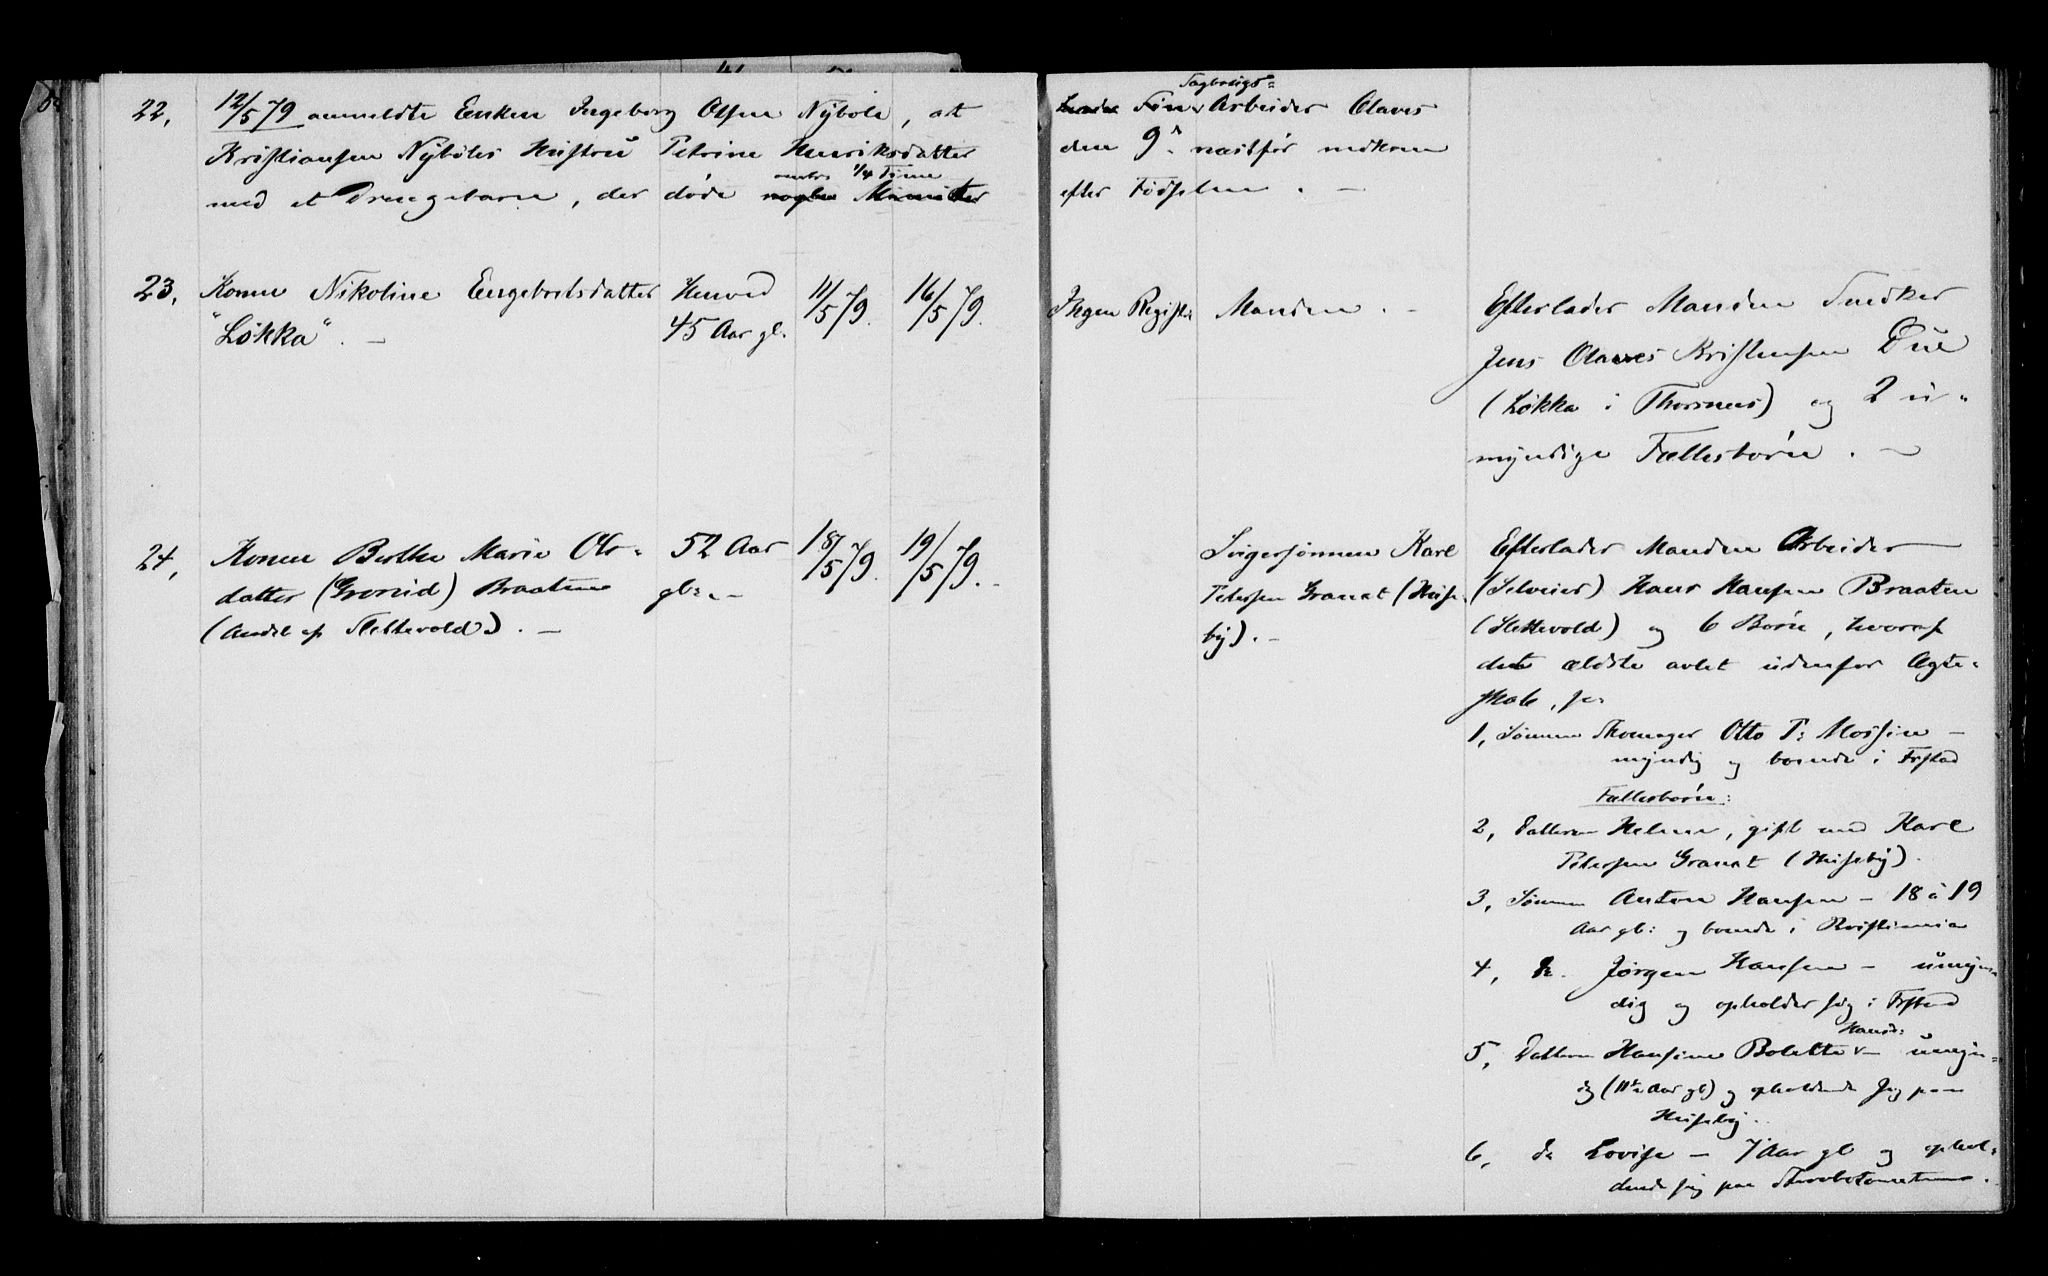 22, 12/5 79 anmeldte Enken Ingeborg Olsen Nybøle, at
Sagbrugs-
Arbeider Olaves
Kristiansen Nybøles Hustru Petrine Henriksdatter
den 9. næstfør nedkom
omtr 1/4 Time
med et Drengebarn, der døde nogle Minuter
efter Fødselen. —
23, Konen Nikoline Engebretsdatter
"Løkka". —
Henved
45 Aar gl.
11/5 79.
16/5 79.
Ingen Registr
Manden. -
Efterlader Manden Snedker
Jens Olaves Kristensen Due
(Løkka i Thorsnes) og 2 u-
myndige Fællesbørn. —
24, Konen Berthe Marie Ols-
datter (Grorud) Braaten
(Andel af Slettevold). —
52 Aar
gl. -
18/5 79.
19/5 79. -
Svigersønnen Karl
Petersen Granat (Huse-
by). -
Efterlader Manden Arbeider
(Selveier) Hans Hansen Braaten
(Slettevold) og 6 Børn, hvoraf
det ældste avlet udenfor Ægte-
skab, s:
1, Sønnen Otto P:
myndig og boende i Frstad
Fællesbørn:
2, Datteren Helene, gift med Karl
Petersen Granat (Huseby).
3, Sønnen Anton Hansen - 18 à 19
Aar gl: og boende i Kristiania
4, do. Jørgen Hansen - umyn-
dig og opholder sig i Frstad
Hansd:
5, Datteren Hansine Bolette - umyn-
dig (11 Aar gl) og opholdende sig paa
Huseby.
6, do Lovise - 7 Aar gl og ophol-
dende sig paa